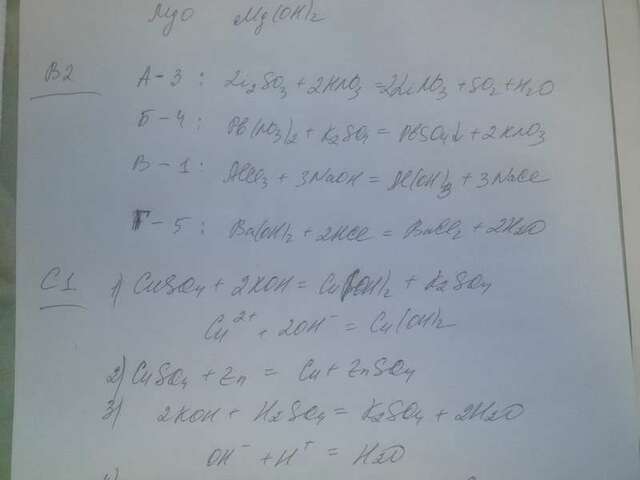 MgO Mg(OH)2
B2 А-3: Li2SO3 + 2HNO3 = 2LiNO3 + SO2 + H2O
Б-4: Pb(NO3)2 + K2SO4 = PbSO4↓ + 2KNO3
В-1: AlCl3 + 3NaOH = Al(OH)3 + 3NaCl
Г-5: Ba(OH)2 + 2HCl = BaCl2 + 2H2O
C1 1) CuSO4 + 2KOH = Cu(OH)2 + K2SO4
Cu2+ + 2OH- = Cu(OH)2
2) CuSO4 + Zn = Cu + ZnSO4
3) 2KOH + H2SO4 = K2SO4 + 2H2O
OH- + H+ = H2O